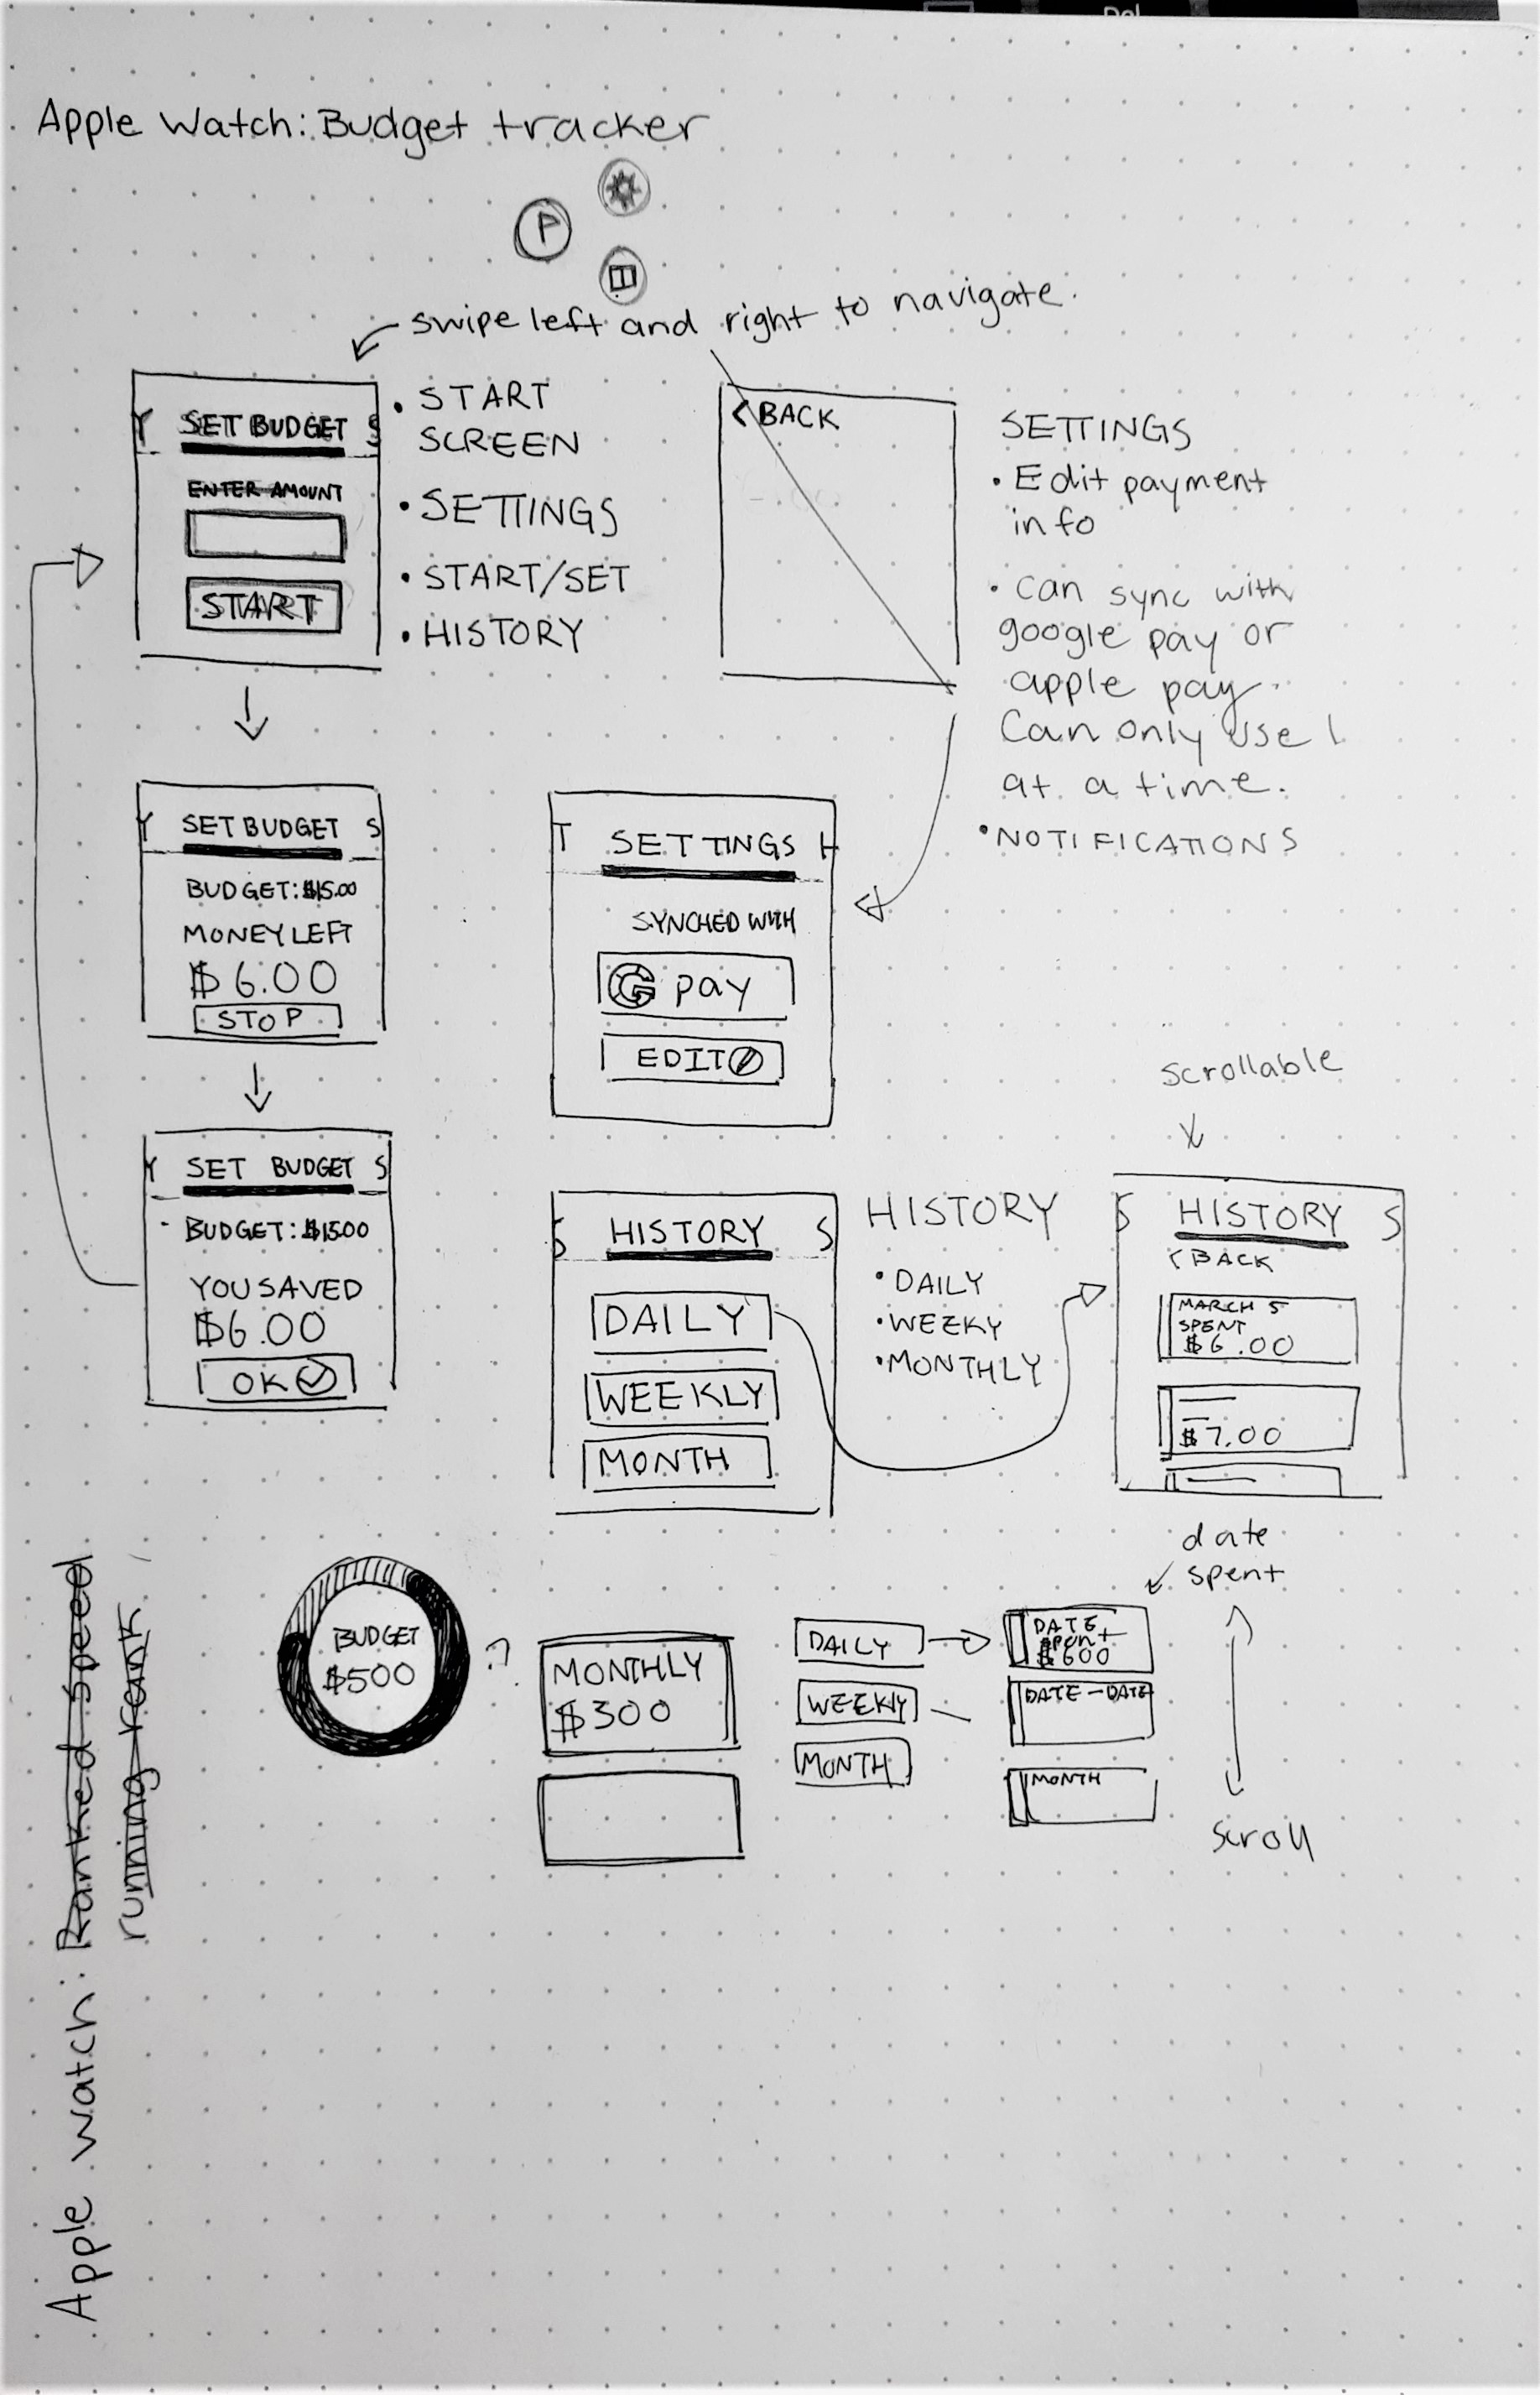 Del
Apple Watch: Budget tracker
P
swipe left and right to navigate.
Y SET BUDGET S
ENTER AMOUNT
START
• START
SCREEN
• SETTINGS
• START/SET
• HISTORY
< BACK
SETTINGS
• Edit payment
info
• Can sync with
google pay or
apple pay.
Can only use 1
at a time.
• NOTIFICATIONS
Y SET BUDGET S
BUDGET: $15.00
MONEY LEFT
$6.00
STOP
T SETTINGS H
SYNCHED WITH
G pay
EDIT
Y SET BUDGET S
BUDGET: $15.00
YOU SAVED
$6.00
OK
S HISTORY S
DAILY
WEEKLY
MONTH
HISTORY
• DAILY
• WEEKY
• MONTHLY
scrollable
S HISTORY S
< BACK
MARCH 5
SPENT
$6.00
$7.00
BUDGET
$500
?
MONTHLY
$300
DAILY
WEEKLY
MONTH
date
spent
DATE
spent
$600
DATE - DATE
MONTH
scroll
Apple watch: Ranked speed
running rank